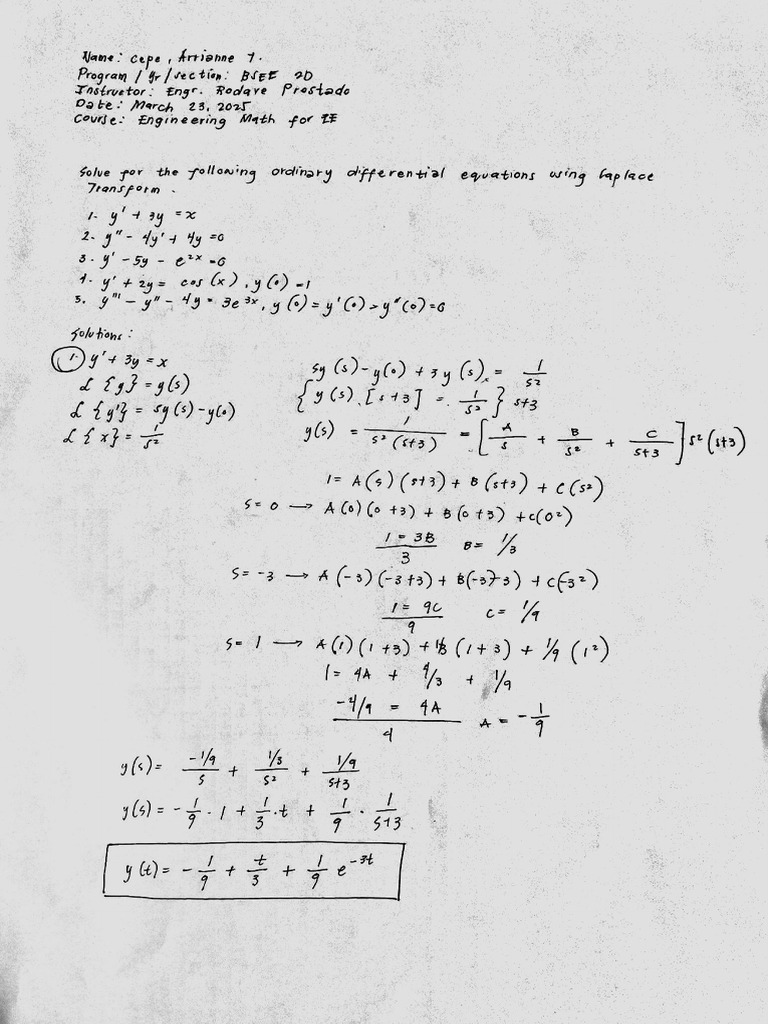 Name: Cepe, Arrianne J.
Program / Yr / section: BSEE 2D
Instructor: Engr. Rodave Prostado
Date: March 23, 2025
Course: Engineering Math for EE
Solve for the following ordinary differential equations using Laplace
Transform.
1. y' + 3y = x
2. y'' - 4y' + 4y = 0
3. y' - 5y - e^2x = 0
4. y' + 2y = cos(x), y(0) = 1
5. y''' - y'' - 4y = 3e^3x, y(0) = y'(0) = y''(0) = 0
Solutions:
1. y' + 3y = x
ℒ{y} = y(s)
ℒ{y'} = sy(s) - y(0)
ℒ{x} = 1/s²
sy(s) - y(0) + 3y(s) = 1/s²
{y(s) [s+3] = 1/s²} s+3
y(s) = 1/s²(s+3) = [A/s + B/s² + C/s+3] s²(s+3)
1 = A(s)(s+3) + B(s+3) + C(s²)
s = 0 → A(0)(0+3) + B(0+3) + C(0²)
1 = 3B/3 B = 1/3
s = -3 → A(-3)(-3+3) + B(-3+3) + C(-3²)
1 = 9C/9 C = 1/9
s = 1 → A(1)(1+3) + B(1+3) + 1/9(1²)
1 = 4A + 4/3 + 1/9
-4/9 = 4A/4 A = -1/9
y(s) = -1/9/s + 1/3/s² + 1/9/s+3
y(s) = -1/9 · 1 + 1/3 · t + 1/9 · 1/s+3
y(t) = -1/9 + t/3 + 1/9 e^-3t